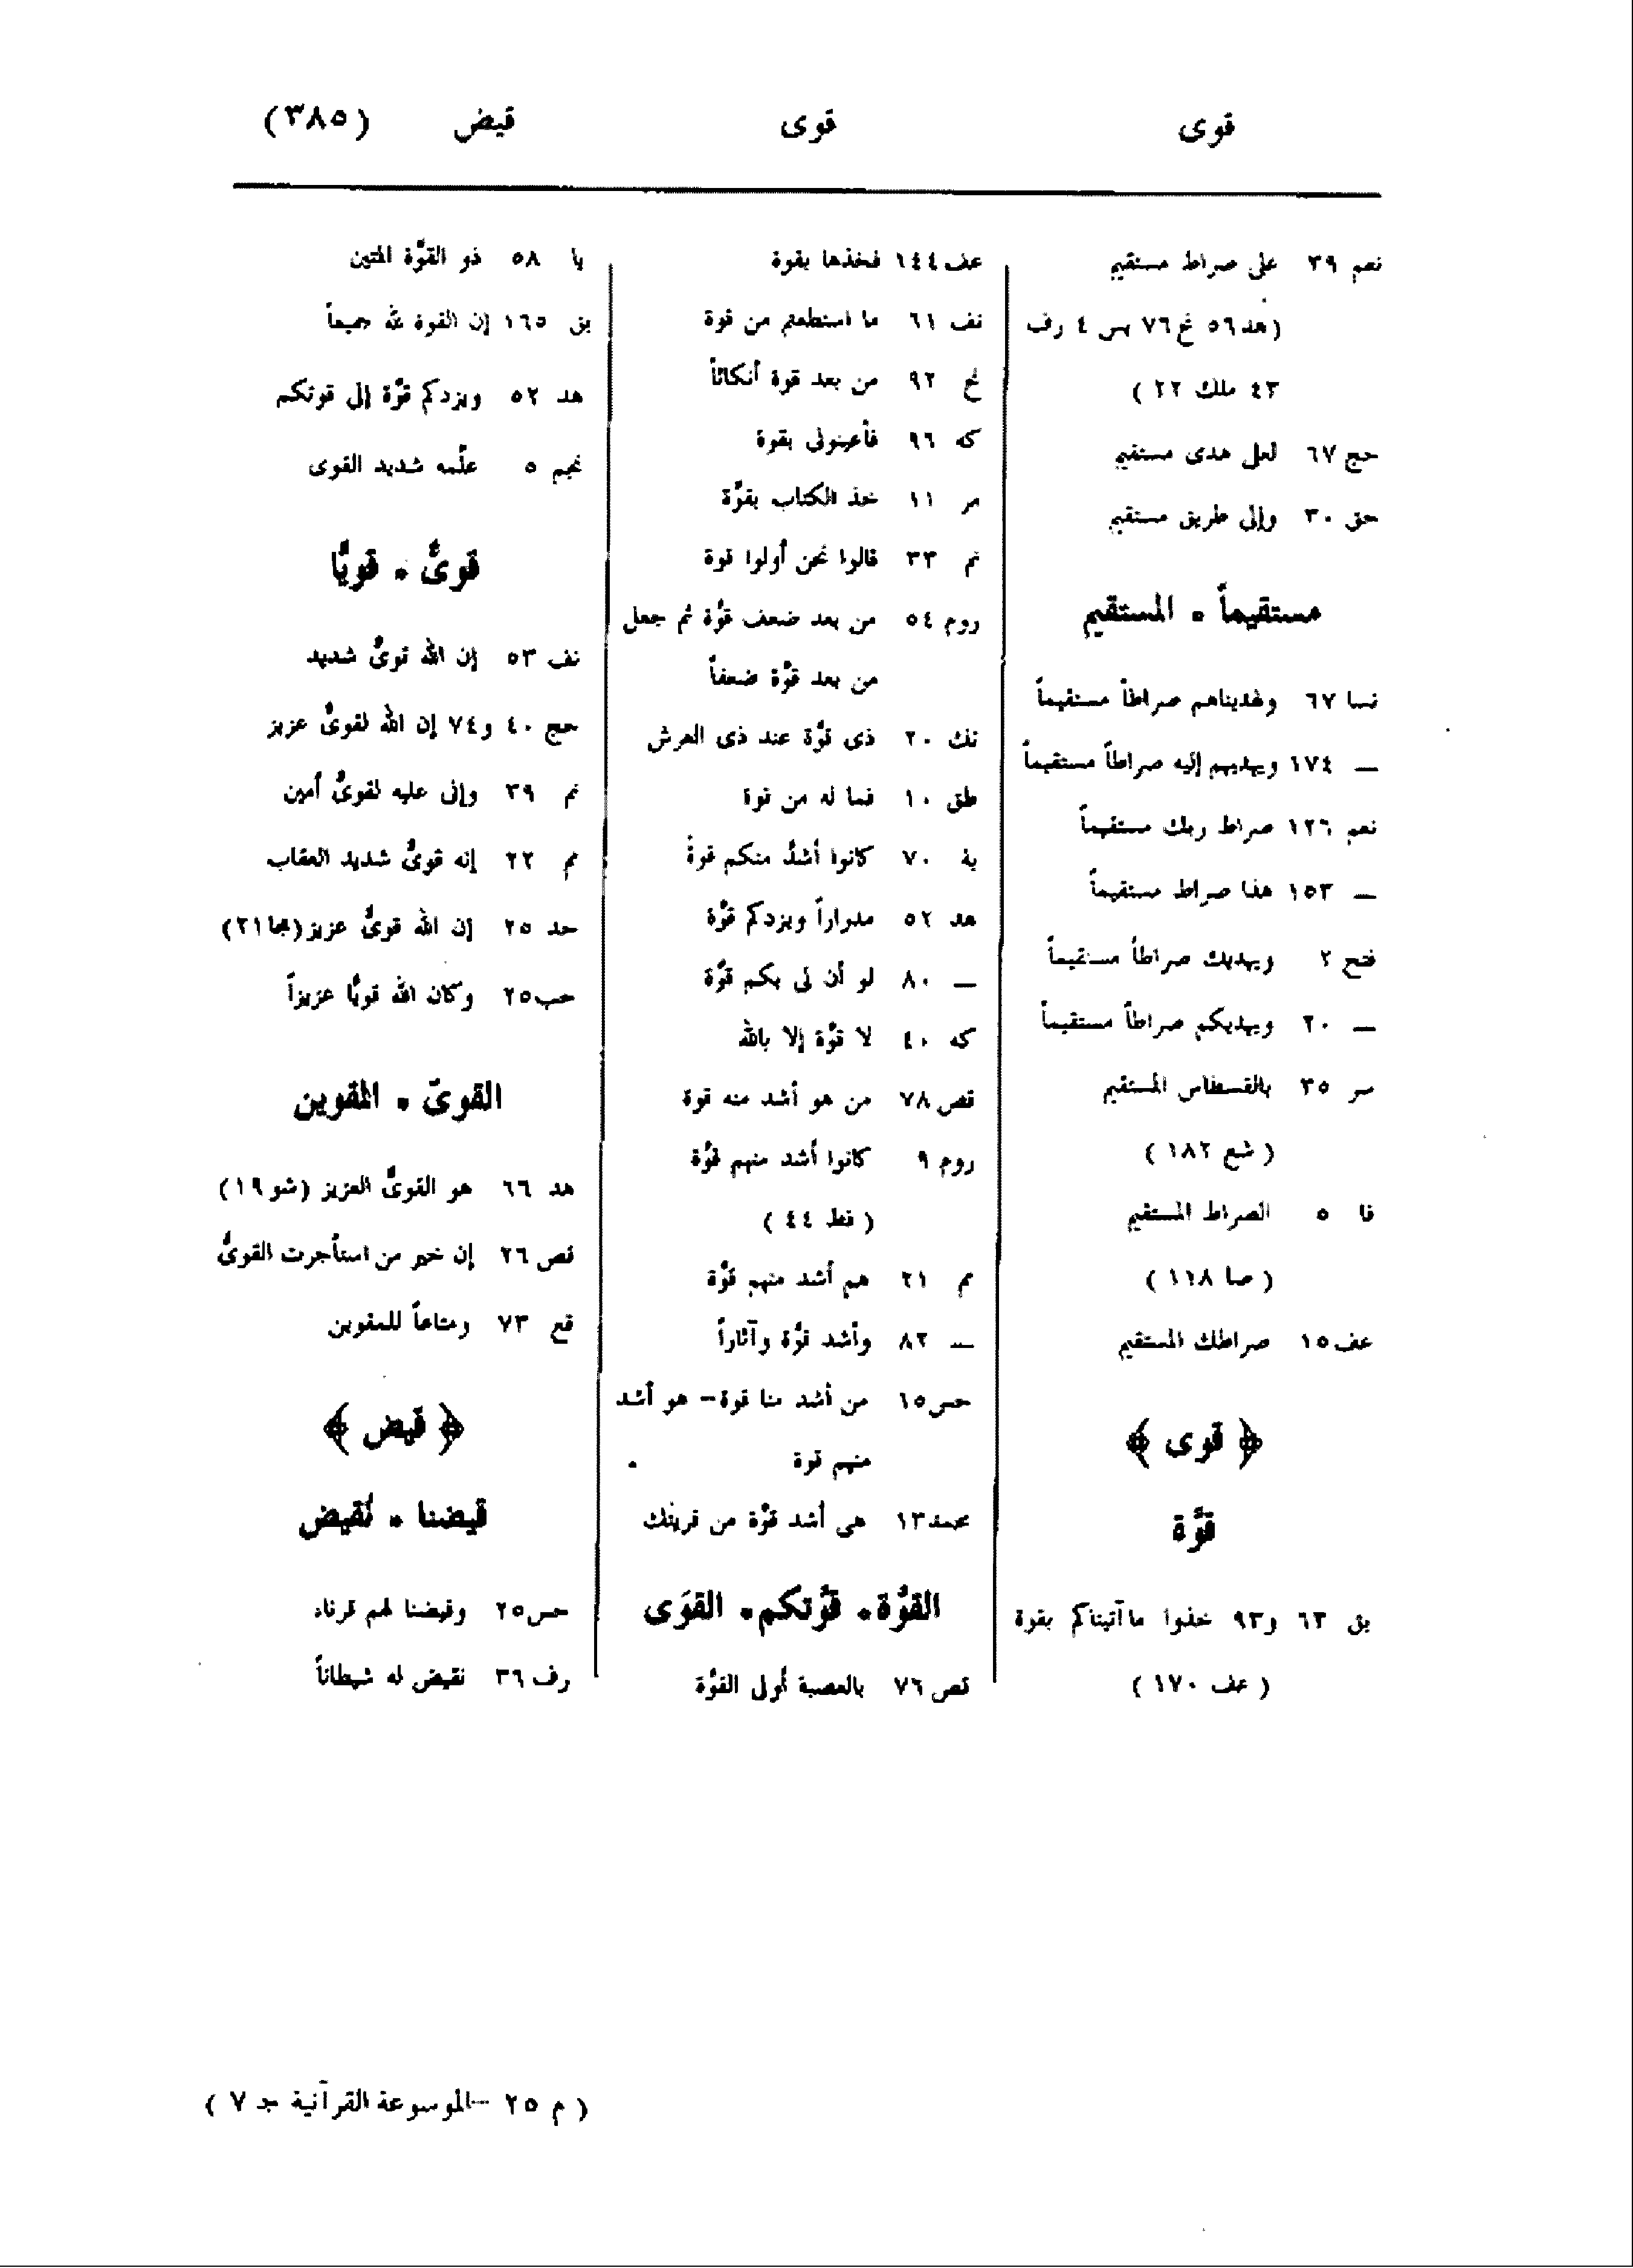 قوى قوى قيض (٣٨٥)
نعم ٣٩ على صراط مستقيم
(هد ٥٦ نح ٧٦ يس ٤ رف
٤٣ ملك ٢٢ )
حج ٦٧ لعلى هدى مستقيم
حق ٣٠ وإلى طريق مستقيم
مستقيماً ٠ المستقيم
نسا ٦٧ ولهديناهم صراطاً مستقيماً
— ١٧٤ ويهديهم إليه صراطاً مستقيماً
نعم ١٢٦ صراط ربك مستقيماً
— ١٥٣ هذا صراط مستقيماً
فتح ٢ ويهديك صراطاً مستقيماً
— ٢٠ ويهديكم صراطاً مستقيماً
سر ٣٥ بالقسطاس المستقيم
( شع ١٨٢ )
فا ٥ الصراط المستقيم
( صا ١١٨ )
عف ١٥ صراطك المستقيم
﴿ قوى ﴾
قوَّة
بق ٦٣ و٩٣ خذوا ما آتيناكم بقوة
( عف ١٧٠ )
عف ١٤٤ فخذها بقوة
نف ٦١ ما استطعتم من قوة
نح ٩٢ من بعد قوة أنكاثاً
كه ٩٦ فأعينونى بقوة
مر ١١ خذ الكتاب بقوَّة
نم ٣٣ قالوا نحن أولوا قوة
روم ٥٤ من بعد ضعف قوَّة ثم جعل
من بعد قوَّة ضعفاً
تك ٢٠ ذى قوَّة عند ذى العرش
طق ١٠ فما له من قوة
بة ٧٠ كانوا أشدَّ منكم قوةً
هد ٥٢ مدراراً ويزدكم قوَّة
— ٨٠ لو أن لى بكم قوَّة
كه ٤٠ لا قوَّة إلا بالله
قص ٧٨ من هو أشد منه قوة
روم ٩ كانوا أشد منهم قوَّة
( فط ٤٤ )
مم ٢١ هم أشد منهم قوَّة
— ٨٢ وأشد قوَّة وآثاراً
حس ١٥ من أشد منا قوة – هو أشد
منهم قوة
محمد ١٣ هى أشد قوَّة من قريتك
القوَّة ٠ قوَّتكم ٠ القوَى
قص ٧٦ بالعصبة أولى القوَّة
يا ٥٨ ذو القوَّة المتين
بق ١٦٥ إن القوة لله جميعاً
هد ٥٢ ويزدكم قوَّة إلى قوتكم
نجم ٥ علّمه شديد القوى
قوىٌّ ٠ قويًّا
نف ٥٣ إن الله قوىٌّ شديد
حج ٤٠ و٧٤ إن الله لقوىٌّ عزيز
نم ٣٩ وإنى عليه لقوىٌّ أمين
مم ٢٢ إنه قوىٌّ شديد العقاب
حد ٢٥ إن الله قوىٌّ عزيز (مجا ٢١)
حب ٢٥ وكان الله قويًّا عزيزاً
القوىّ ٠ المقوين
هد ٦٦ هو القوىُّ العزيز (شو ١٩)
قص ٢٦ إن خير من استأجرت القوىُّ
قع ٧٣ ومتاعاً للمقوين
﴿ قيض ﴾
قيضنا ٠ نُقيض
حس ٢٥ وقيضنا لهم قرناء
رف ٣٦ نقيض له شيطاناً
( م ٢٥ – الموسوعة القرآنية جـ ٧ )